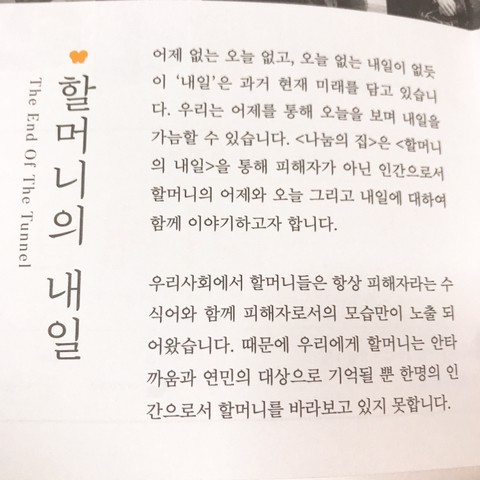 할머니의 내일
The End Of The Tunnel
어제 없는 오늘 없고, 오늘 없는 내일이 없듯
이 ‘내일’은 과거 현재 미래를 담고 있습니
다. 우리는 어제를 통해 오늘을 보며 내일을
가늠할 수 있습니다. <나눔의 집>은 <할머니
의 내일>을 통해 피해자가 아닌 인간으로서
할머니의 어제와 오늘 그리고 내일에 대하여
함께 이야기하고자 합니다.
우리사회에서 할머니들은 항상 피해자라는 수
식어와 함께 피해자로서의 모습만이 노출 되
어왔습니다. 때문에 우리에게 할머니는 안타
까움과 연민의 대상으로 기억될 뿐 한명의 인
간으로서 할머니를 바라보고 있지 못합니다.